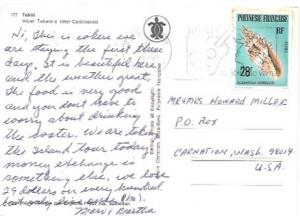 177 Tahiti
Hôtel Tahara'a Inter-Continental
Hi, This is where we
are staying the first three
days. It is beautiful here
and the weather great.
The food is very good
and you dont have to
worry about drinking
the water. We are taking
the Island tour today
money exchange is
something else, we lose
29 dollars on every hundred.
Marv & Martha
POLYNESIE FRANÇAISE
RF
28F
MR & MRS HOWARD MILLER
P.O. BOX
CARNATION, WASH. 98014
U.S.A.